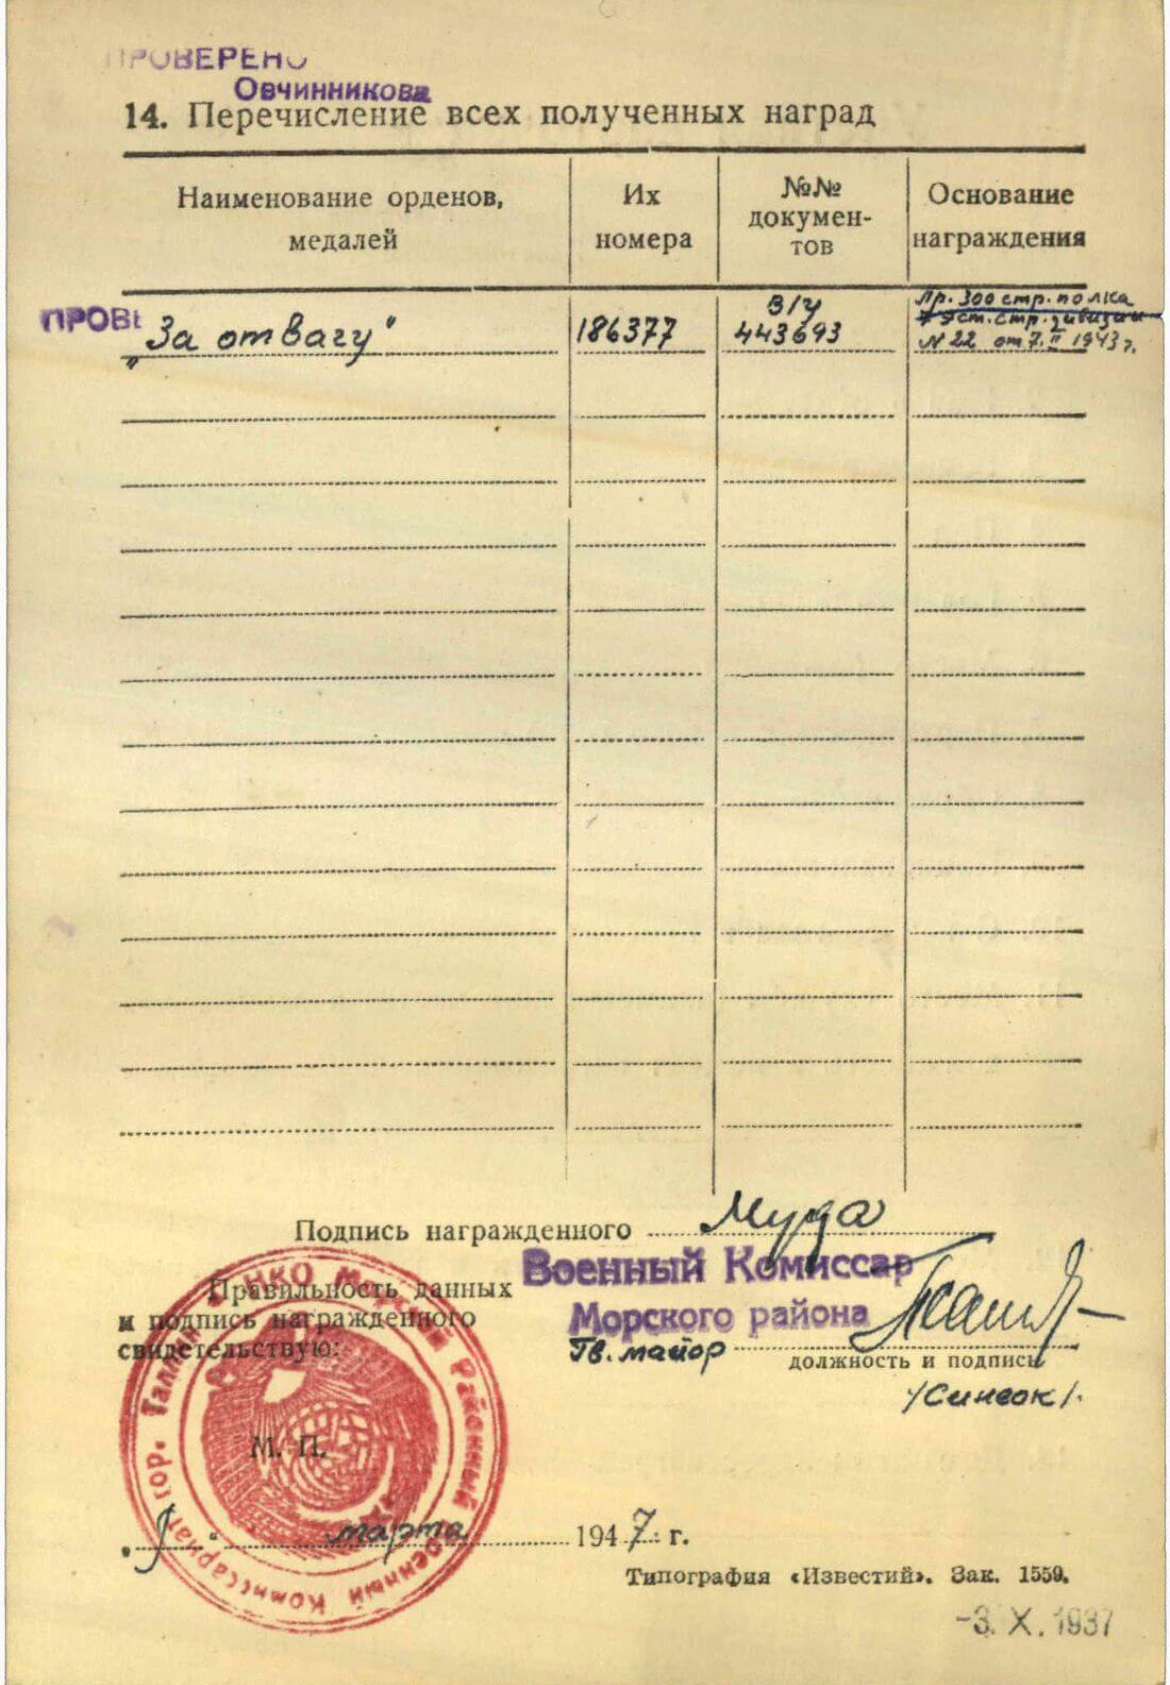 ПРОВЕРЕНО
Овчинникова
14. Перечисление всех полученных наград
Наименование орденов, медалей
Их номера
№№ докумен-тов
Основание награждения
ПРОВЕ
„За отвагу"
186377
В/у
443693
Пр. 300 стр. полка
7 Эст. стр. дивизии
N 22 от 7. II 1943 г.
Подпись награжденного Мурда
Военный Комиссар
Правильность данных
и подпись награжденного
свидетельствую:
Морского района
Гв. майор
должность и подпись
/Синеок/.
М. П.
гор. Таллин НКО Морской Районный Военный Комиссариат
„9" марта 1947 г.
Типография «Известий». Зак. 1559.
-3. X. 1937